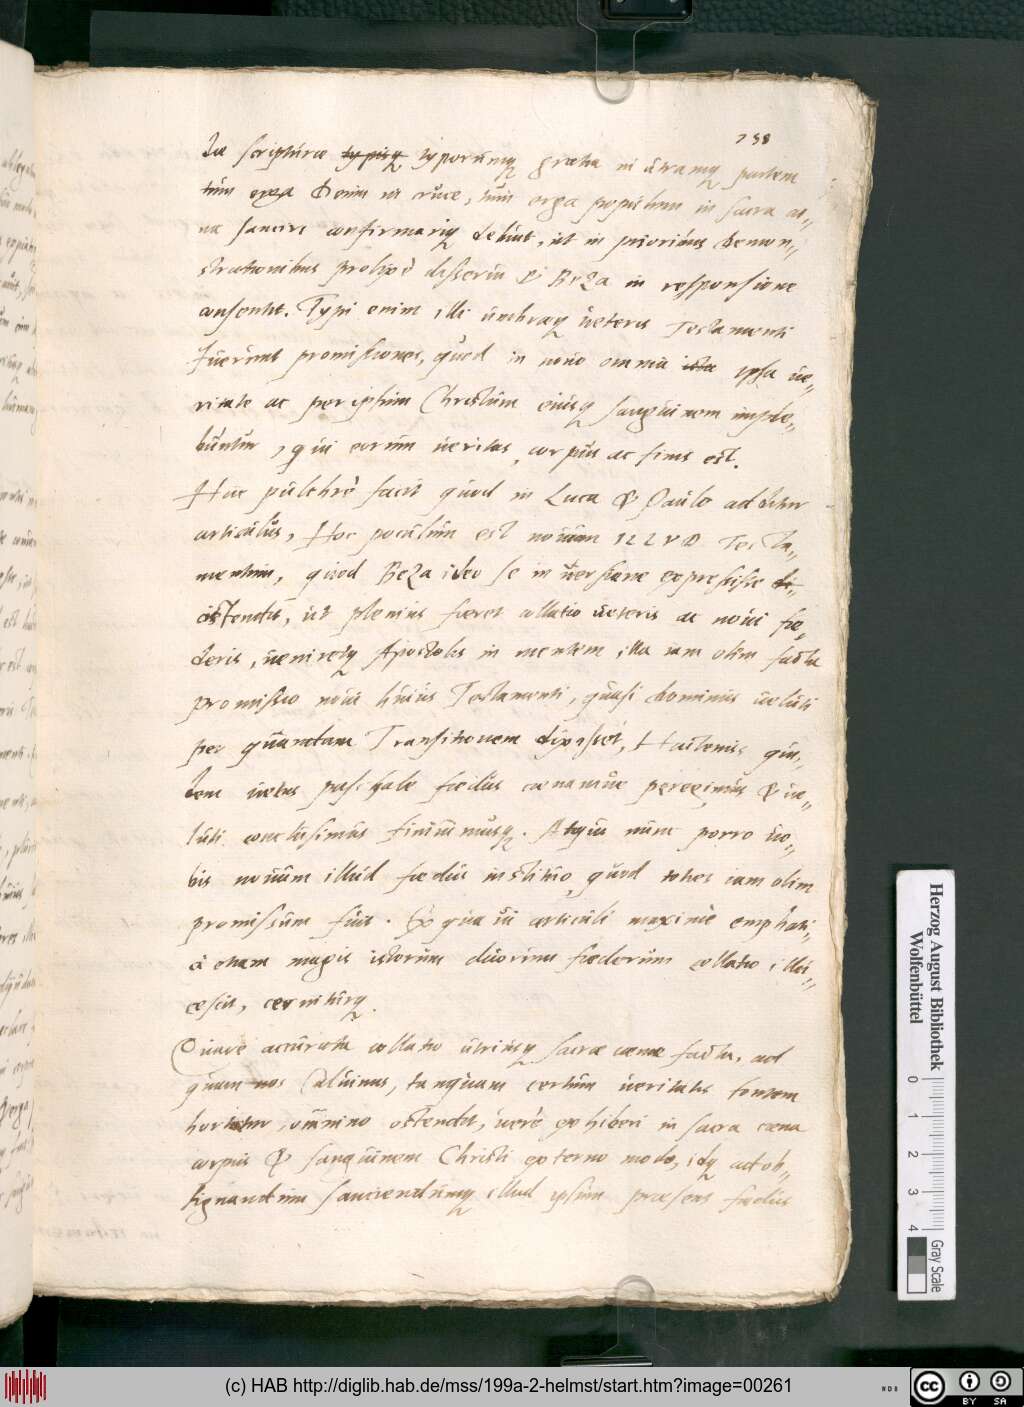 238
scripturæ typisq́ typorumq́ gratia in utramq́ partem
tum erga Deum in cruce, tum erga populum in sacra cœ-
na sancire confirmariq́ debuit, ut in prioribus Demon-
strationibus prolixè disserui & Beza in responsione
consentit. Typi enim illi umbraq́ veteris Testamenti
fuerunt promissiones, quod in novo omnia ista ipsa ve-
ritate ac per ipsum Christum eiusq́ sanguinem imple-
buntur, qui eorum veritas, corpus ac finis est.
Huc pulchrè facit quod in Luca & Paulo additur
articulus, Hoc poculum est novum ILLVD Testa-
mentum, quod Beza ideo se in versione expressisse di-
ostendit, ut plenius fieret collatio veteris ac novi fœ-
deris, veniretq́ Apostolis in mentem illa iam olim facta
promissio novi huius Testamenti, quasi dominus veluti
per quandam Transitionem dixisset, Hactenus qui-
dem vetus paschale fœdus cœnamue peregimus & ve-
luti conclusimus finiuimusq́. Atqui nunc porro vo-
bis novum illud fœdus instituo, quod toties iam olim
promissum fuit. Ex qua vi articuli maximè emphati-
ca etiam magis istorum duorum fœderum collatio illu-
cescit, cerniturq́.
Quare accurata collatio utriusq́ sacræ cœnæ facta, ad
quam nos Caluinus, tanquam certum veritatis fontem
hortatur, omnino ostendit, verè exhiberi in sacra cœna
corpus & sanguinem Christi externo modo, idq́ ad ob-
signandum sanciendumq́ illud ipsum præsens fœdus
Herzog August Bibliothek
Wolfenbüttel
0 1 2 3 4
Gray Scale
(c) HAB http://diglib.hab.de/mss/199a-2-helmst/start.htm?image=00261
cc BY SA